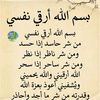 بسم الله أرقي نفسي
بسم الله أرقي نفسي
من شر حاسد إذا حسد
ومن شر ناظر إذا نظر
ومن شر ساحر إذا سحر
الله أرقيني والله يحميني
ويشفيني أعوذ بعزة الله
وقدرته من شر ما أجد وأحاذر